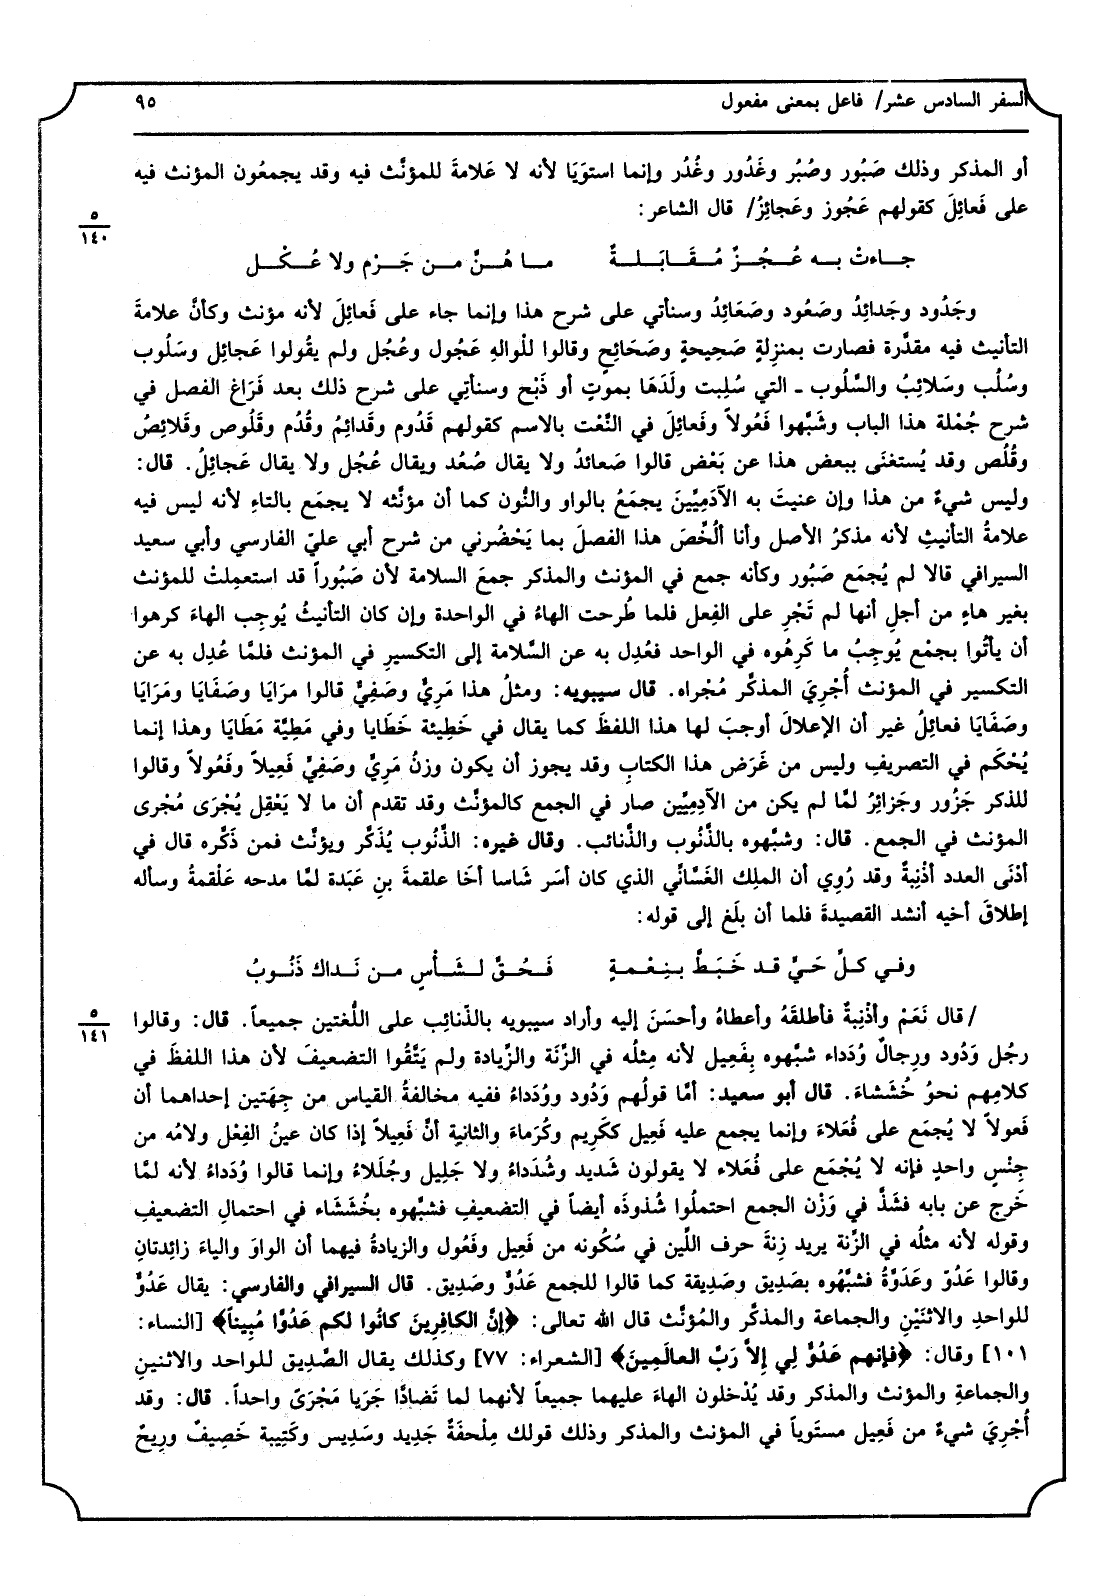 السفر السادس عشر/ فاعل بمعنى مفعول ٩٥
أو المذكر وذلك صَبُور وصُبُر وغَدُور وغُدُر وإنما استوَيَا لأنه لا عَلامةَ للمؤنَّث فيه وقد يجمعُون المؤنث فيه
على فَعائِلَ كقولهم عَجُوز وعَجائِزُ/ قال الشاعر:
٥
١٤٠
جـاءتْ بـه عُـجُـزٌ مُـقَـابَـلـةٌ مـا هُـنَّ مـن جَـرْم ولا عُـكْـل
وجَدُود وجَدائِدُ وصَعُود وصَعَائِدُ وسنأتي على شرح هذا وإنما جاء على فَعائِلَ لأنه مؤنث وكأنَّ علامةَ
التأنيث فيه مقدَّرة فصارت بمنزلةِ صَحِيحةٍ وصَحَائِح وقالوا للْوالِهِ عَجُول وعُجُل ولم يقُولوا عَجائِل وسَلُوب
وسُلُب وسَلائِبُ والسَّلُوب ـ التي سُلِبت ولَدَهَا بموتٍ أو ذَبْح وسنأتِي على شرح ذلك بعد فَرَاغ الفصل في
شرح جُمْلة هذا الباب وشَبَّهوا فَعُولاً وفَعائِلَ في النَّعْت بالاسم كقولهم قَدُوم وقَدائِمُ وقُدُم وقَلُوص وقَلائِصُ
وقُلُص وقد يُستغنَى ببعض هذا عن بَعْض قالوا صَعائدُ ولا يقال صُعُد ويقال عُجُل ولا يقال عَجائِلُ. قال:
وليس شيءٌ من هذا وإن عنيتَ به الآدَمِيِّينَ يجمَعُ بالواو والنُّون كما أن مؤنَّثه لا يجمَع بالتاءِ لأنه ليس فيه
علامةُ التأنيثِ لأنه مذكرُ الأصل وأنا ألَخِّصُ هذا الفصلَ بما يَحْضُرني من شرح أبي عليّ الفارسي وأبي سعيد
السيرافي قالا لم يُجمَع صَبُور وكأنه جمع في المؤنث والمذكر جمعَ السلامة لأن صَبُوراً قد استعمِلتْ للمؤنث
بغير هاءٍ من أجلِ أنها لم تَجْرِ على الفِعل فلما طُرحت الهاءُ في الواحدة وإن كان التأنيثُ يُوجِب الهاءَ كرهوا
أن يأتُوا بجمْع يُوجِبُ ما كَرِهُوه في الواحد فعُدِل به عن السَّلامة إلى التكسيرِ في المؤنث فلمَّا عُدِل به عن
التكسير في المؤنث أُجْرِيَ المذكَّر مُجْراه. قال سيبويه: ومثلُ هذا مَرِيٌّ وصَفِيٌّ قالوا مرَايَا وصَفَايَا ومَرَايَا
وصَفَايَا فعائِلُ غير أن الإعلالَ أوجبَ لها هذا اللفظَ كما يقال في خَطِيئة خَطَايا وفي مَطِيَّة مَطَايَا وهذا إنما
يُحْكَم في التصريفِ وليس من غَرَض هذا الكتابِ وقد يجوز أن يكون وزنُ مَرِيٍّ وصَفِيٍّ فَعِيلاً وفَعُولاً وقالوا
للذكر جَزُور وجَزائِرُ لمَّا لم يكن من الآدِمِيِّين صار في الجمع كالمؤنَّث وقد تقدم أن ما لا يَعْقِل يُجْرَى مُجْرى
المؤنث في الجمع. قال: وشبَّهوه بالذَّنُوب والذَّنائب. وقال غيره: الذَّنُوب يُذَكَّر ويؤنَّث فمن ذَكَّره قال في
أدْنَى العدد أذْنِبةٌ وقد رُوِي أن الملِك الغَسَّاني الذي كان أسَر شَاسا أخَا علقمةَ بنِ عَبَدة لمَّا مدحه عَلْقمةُ وسأله
إطلاقَ أخيه أنشد القصيدةَ فلما أن بلَغ إلى قوله:
وفـي كـلِّ حَـيٍّ قـد خَـبَـطَّ بـنِـعْـمـةٍ فَـحُـقَّ لـشَـأْسٍ مـن نَـداك ذَنُـوبُ
/ قال نَعَمْ وأذْنِبةٌ فأطلقَهُ وأعطاهُ وأحسَنَ إليه وأراد سيبويه بالذَّنائِب على اللُّغتين جميعاً. قال: وقالوا
٥
١٤١
رجُل وَدُود ورِجالٌ وُدَداء شبَّهوه بِفَعِيل لأنه مِثلُه في الزِّنَة والزِّيادة ولم يَتَّقُوا التضعيفَ لأن هذا اللفظَ في
كلامِهم نحوُ خُشَشاءَ. قال أبو سعيد: أمَّا قولُهم وَدُود ووُدَداءُ ففيه مخالفةُ القياس من جِهَتين إحداهما أن
فَعولاً لا يُجمَع على فُعَلاءَ وإنما يجمع عليه فَعِيل ككَرِيم وكُرَماءَ والثانية أنَّ فَعِيلاً إذا كان عينُ الفِعْل ولامُه من
جِنْسٍ واحدٍ فإنه لا يُجْمَع على فُعَلاء لا يقولون شَديد وشُدَداءُ ولا جَلِيل وجُلَلاءُ وإنما قالوا وُدَداءُ لأنه لمَّا
خَرج عن بابه فشَذَّ في وَزْن الجمع احتملُوا شُذوذَه أيضاً في التضعيفِ فشبَّهوه بخُشَشَاء في احتمالِ التضعيفِ
وقوله لأنه مثلُه في الزِّنة يريد زِنةَ حرف اللِّين في سُكُونه من فَعِيل وفَعُول والزيادةُ فيهما أن الواوَ والياءَ زائِدتانِ
وقالوا عَدُوّ وعَدَوَّةُ فشبَّهُوه بصَدِيق وصَدِيقة كما قالوا للجمع عَدُوٌّ وصَدِيق. قال السيرافي والفارسي: يقال عَدُوٌّ
للواحدِ والاثنَيْنِ والجماعة والمذكَّر والمُؤنَّث قال الله تعالى: ﴿إنَّ الكافِرِينَ كانُوا لكم عَدُوًّا مُبِيناً﴾ [النساء:
١٠١] وقال: ﴿فإنهم عَدُوٌّ لِي إلاَّ رَبَّ العالَمِينَ﴾ [الشعراء: ٧٧] وكذلك يقال الصَّدِيق للواحد والاثنينِ
والجماعةِ والمؤنث والمذكر وقد يُدْخلون الهاءَ عليهما جميعاً لأنهما لما تَضادَّا جَرَيا مَجْرَىَ واحداً. قال: وقد
أُجْرِيَ شيءٌ من فَعِيل مستَوِياً في المؤنث والمذكر وذلك قولك مِلْحفةٌ جَدِيد وسَدِيس وكَتِيبة خَصِيفٌ ورِيحٌ